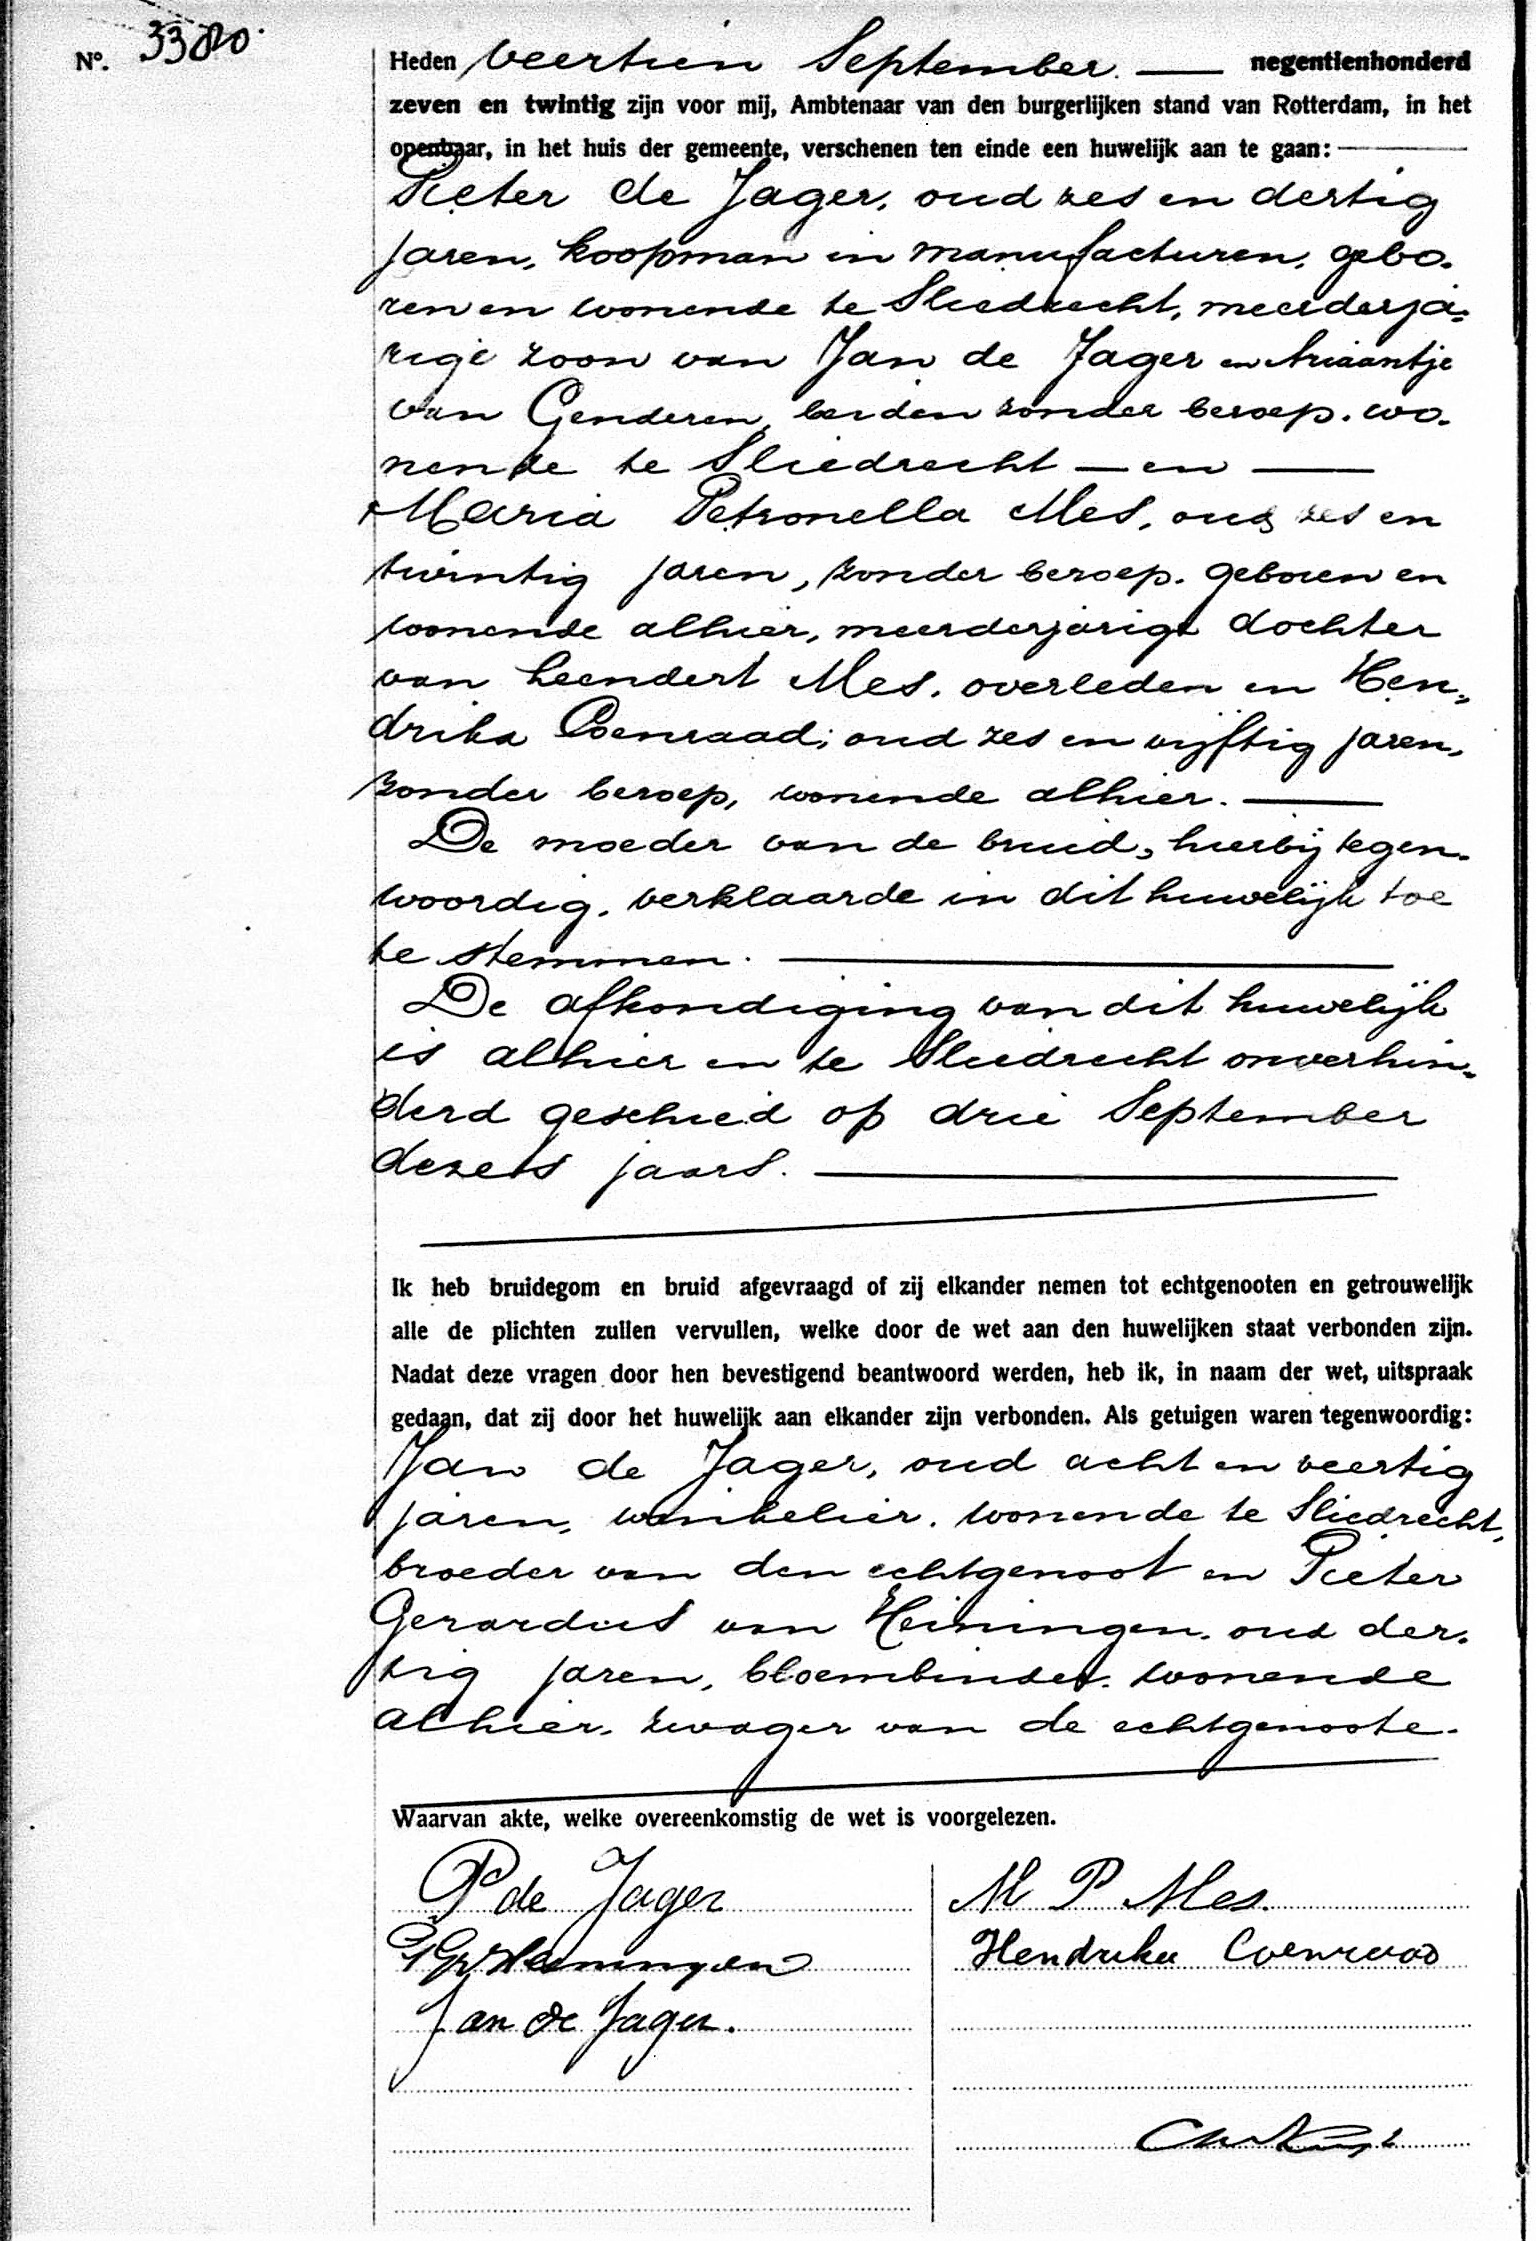 No. 3380.
Heden veertien September. — negentienhonderd
zeven en twintig zijn voor mij, Ambtenaar van den burgerlijken stand van Rotterdam, in het
openbaar, in het huis der gemeente, verschenen ten einde een huwelijk aan te gaan: —
Pieter de Jager, oud zes en dertig
jaren, koopman in manufacturen, gebo-
ren en wonende te Sliedrecht, meerderja-
rige zoon van Jan de Jager en Ariaantje
van Genderen, beiden zonder beroep, wo-
nende te Sliedrecht — en —
Maria Petronella Mes, oud zes en
twintig jaren, zonder beroep, geboren en
wonende alhier, meerderjarige dochter
van Leendert Mes, overleden en Hen-
drika Coenraad, oud zes en vijftig jaren,
zonder beroep, wonende alhier. —
De moeder van de bruid, hierbij tegen-
woordig, verklaarde in dit huwelijk toe
te stemmen. —
De afkondiging van dit huwelijk
is alhier en te Sliedrecht onverhin-
derd geschied op drie September
dezes jaars. —
Ik heb bruidegom en bruid afgevraagd of zij elkander nemen tot echtgenooten en getrouwelijk
alle de plichten zullen vervullen, welke door de wet aan den huwelijken staat verbonden zijn.
Nadat deze vragen door hen bevestigend beantwoord werden, heb ik, in naam der wet, uitspraak
gedaan, dat zij door het huwelijk aan elkander zijn verbonden. Als getuigen waren tegenwoordig:
Jan de Jager, oud acht en veertig
jaren, winkelier, wonende te Sliedrecht,
broeder van den echtgenoot en Pieter
Gerardus van Heiningen, oud der-
tig jaren, bloembinder, wonende
alhier, zwager van de echtgenoote.
Waarvan akte, welke overeenkomstig de wet is voorgelezen.
P de Jager
M P Mes.
PGvHeiningen
Hendrika Coenraad
Jan de Jager.